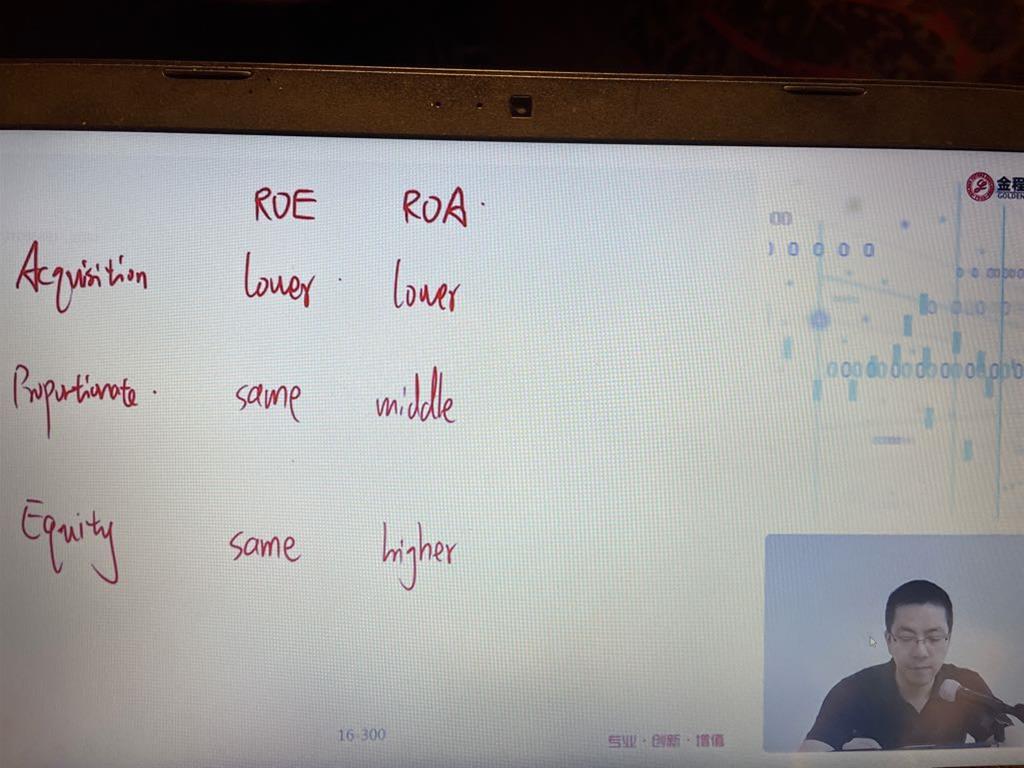 金程
GOLDEN
ROE ROA
Acquisition lower lower
Proportionate same middle
Equity same higher
16-300
专业·创新·增值